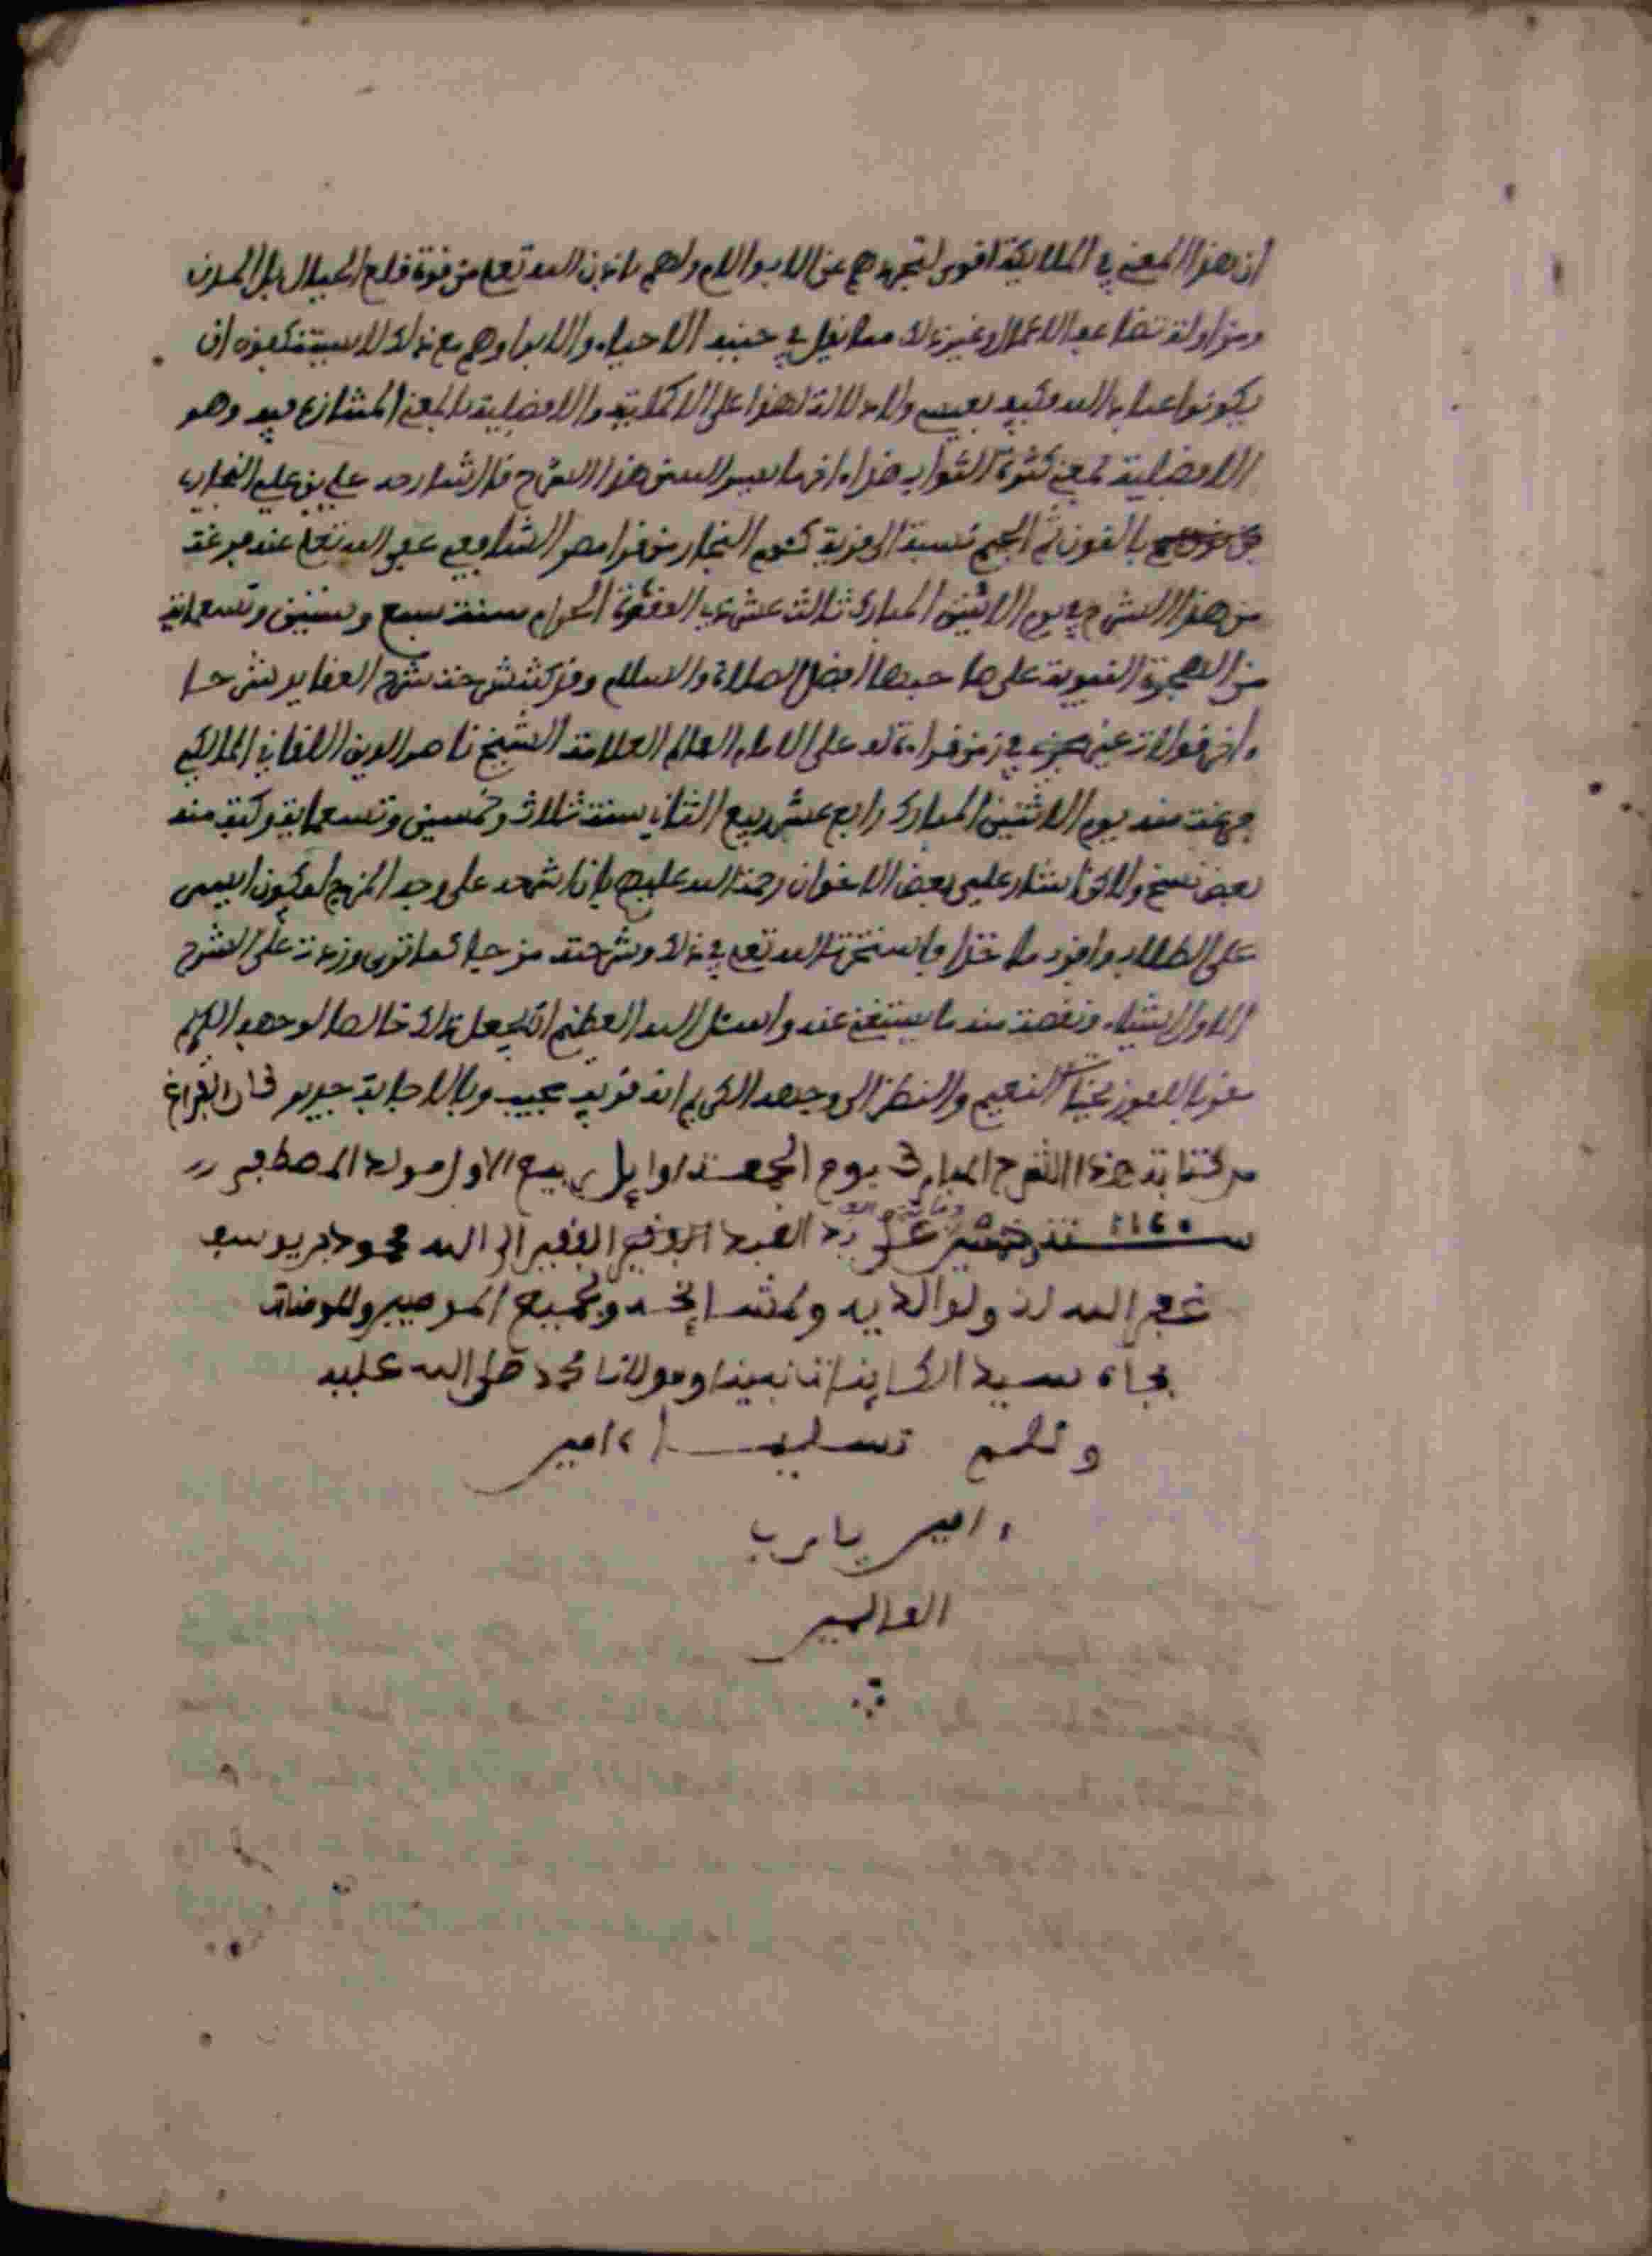 ان هذا المعنى في الملايكة اقوى لتجردهم عن الاب والام ولهم باذن الله تعلى من قوة قلع الجبال بل المدن
ومزاولة تضاعف الاعمال وغير ذلك مما يقل في جنبه الاحياء والابرا وهم مع ذلك لا يستنكفون ان
يكونوا عبادا لله فكيف بعيسى ولا دلالة لهذا على الاكملية والافضلية بالمعنى المتنازع فيه وهو
الافضلية بمعنى كثرة الثواب هذا اخر ما يسر الله من هذا الشرح قال شارحه علي بن علي النجاري
بالنون ثم الجيم نسبة الى قرية كفوم النجار من قرا مصر الشافعي عفى الله تعلى عنه فرغت
من هذا الشرح في يوم الاثنين المبارك ثالث عشري القعدة الحرام سنة سبع وستين وتسعماية
من الهجرة النبوية على صاحبها افضل الصلاة والسلام وقد كنت شرحت شرح العقايد شرحا
باخر قولات عني في زمن قراءته له على الامام العالم العلامة الشيخ ناصر الدين اللقاني المالكي
فرغت منه يوم الاثنين المبارك رابع عشر ربيع الثاني سنة ثلاث وخمسين وتسعماية وكتب منه
بعض نسخ والان اشار علي بعض الاخوان رحمة الله عليهم بان اشرحه على وجه المزج لكون ايسر
على الطلاب وافيد ماخذا فاستخرت الله تعلى في ذلك وشرحته مزجا كما ترى وزدت على الشرح
الاول اشياء ونقصت منه ما يستغنى عنه واسئل الله العظيم ان يجعل ذلك خالصا لوجهه الكريم
سببا للفوز بجنات النعيم والنظر الى وجهه الكريم انه قريب مجيب وبالاجابة جدير كان الفراغ
من كتابة هذا الشرح المبارك يوم الجمعة اوايل ربيع الاول مولد المصطفى
سنة ١١٤٥ على يد العبد الفقير الى الله محمود بن يوسف
غفر الله له ولوالديه ولمشايخه ولجميع المومنين والمومنات
بجاه سيد الكاينات نبينا ومولانا محمد صلى الله عليه
وسلم تسليما ءامين
ءامين يا رب
العالمين